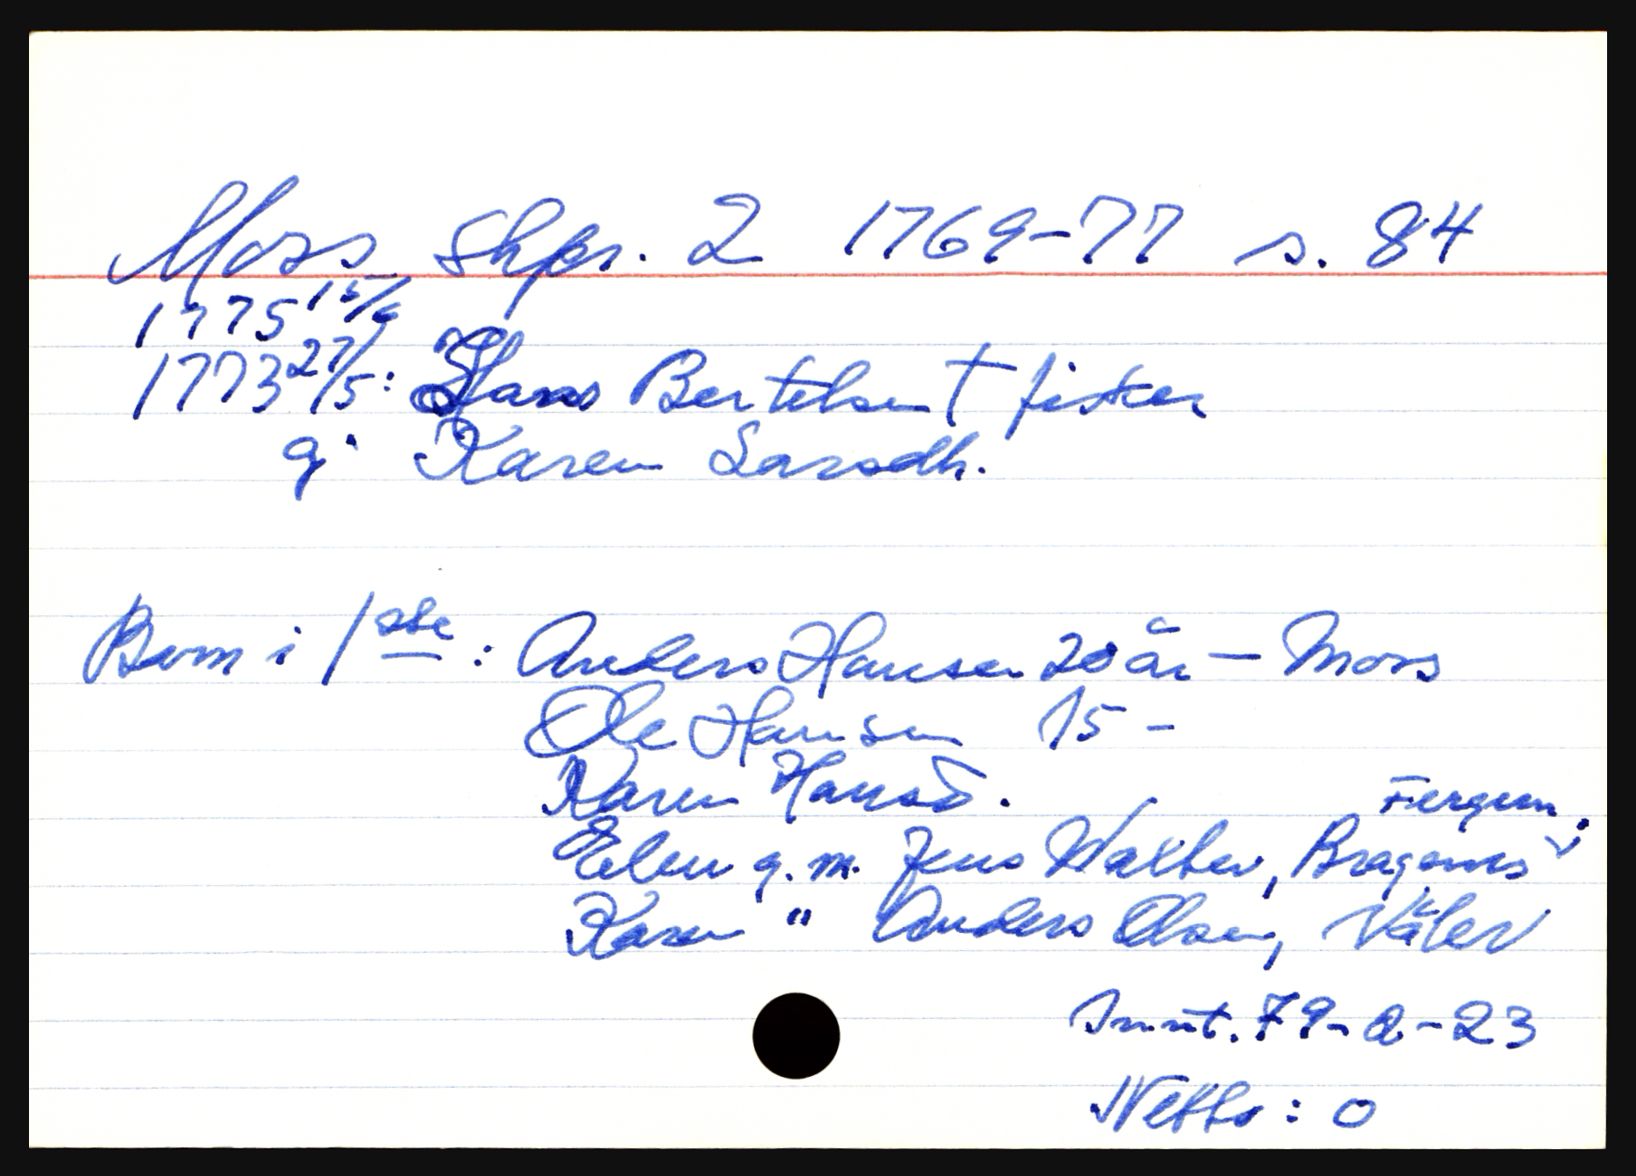 Moss Skpr. 2 1769-77 s. 84
1775 15/6
1773 27/5: Hans Bertelsen † fisker
g. Karen Larsdh.
Barn i 1ste : Anders Hansen 20 år — Moss
Ole Hansen 15 -
Karen Hansd.
Elen g.m. Jens Walber, Bragernes
Karen " Anders Olsen, Våler
Brutt. 79-2-23
Netto: 0